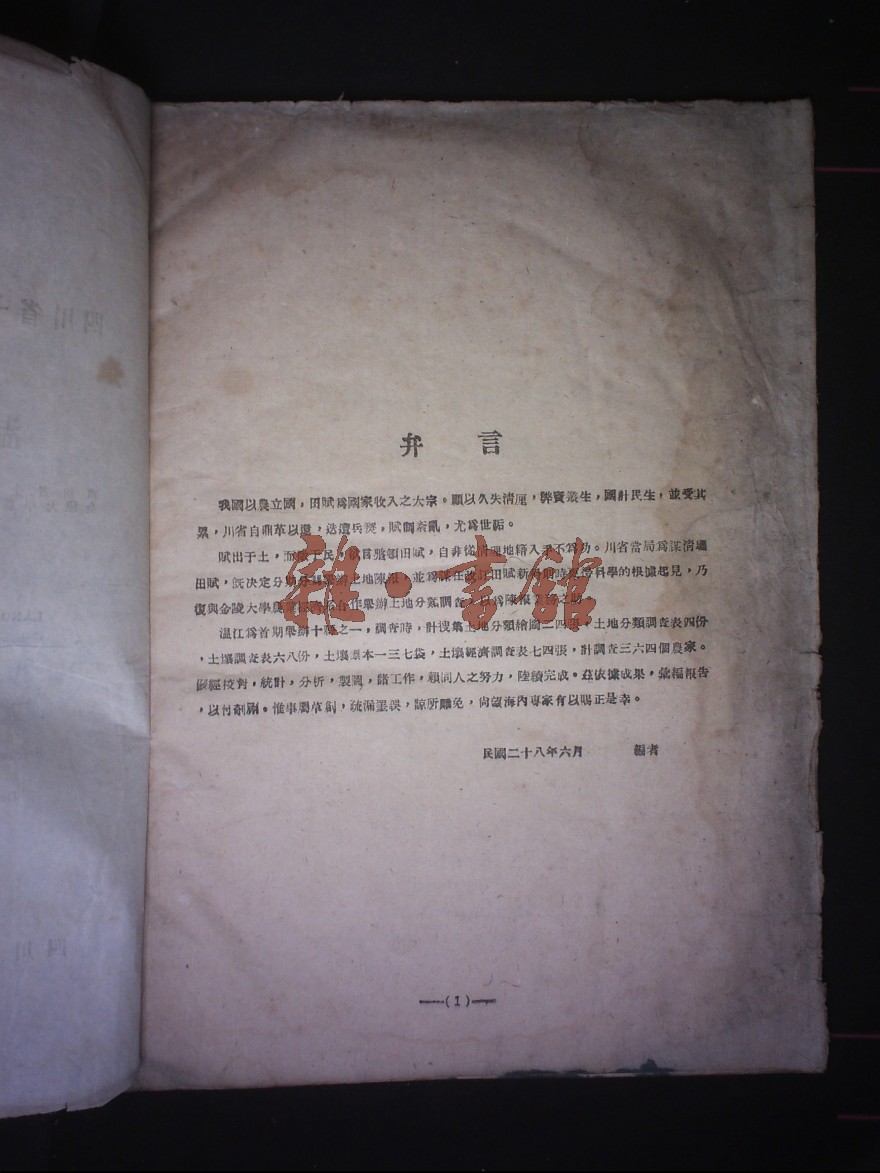 弁 言
我國以農立國,田賦爲國家收入之大宗。顧以久失清厘,弊竇叢生,國計民生,並受其
累,川省自鼎革以還,迭遭兵燹,賦制紊亂,尤爲世詬。
賦出于土,而徵于民,欲言整頓田賦,自非從清理地籍入手不爲功。川省當局爲謀清釐
田賦,旣決定分期分縣舉辦土地陳報,並爲謀在改訂田賦新科則時獲得科學的根據起見,乃
復與金陵大學農業經濟系合作舉辦土地分類調查,以爲陳報之助。
溫江爲首期舉辦十縣之一,調查時,計搜集土地分類繪圖二四張,土地分類調查表四份
,土壤調查表六八份,土壤標本一三七袋,土壤經濟調查表七四張,計調查三六四個農家。
嗣經校對,統計,分析,製圖,諸工作,賴同人之努力,陸續完成。茲依據成果,彙編報告
,以付剞劂。惟事屬草創,疏漏罣誤,諒所難免,尚望海內專家有以賜正是幸。
民國二十八年六月 編者
—(1)—
雜·書館
四川省
LAND
四川